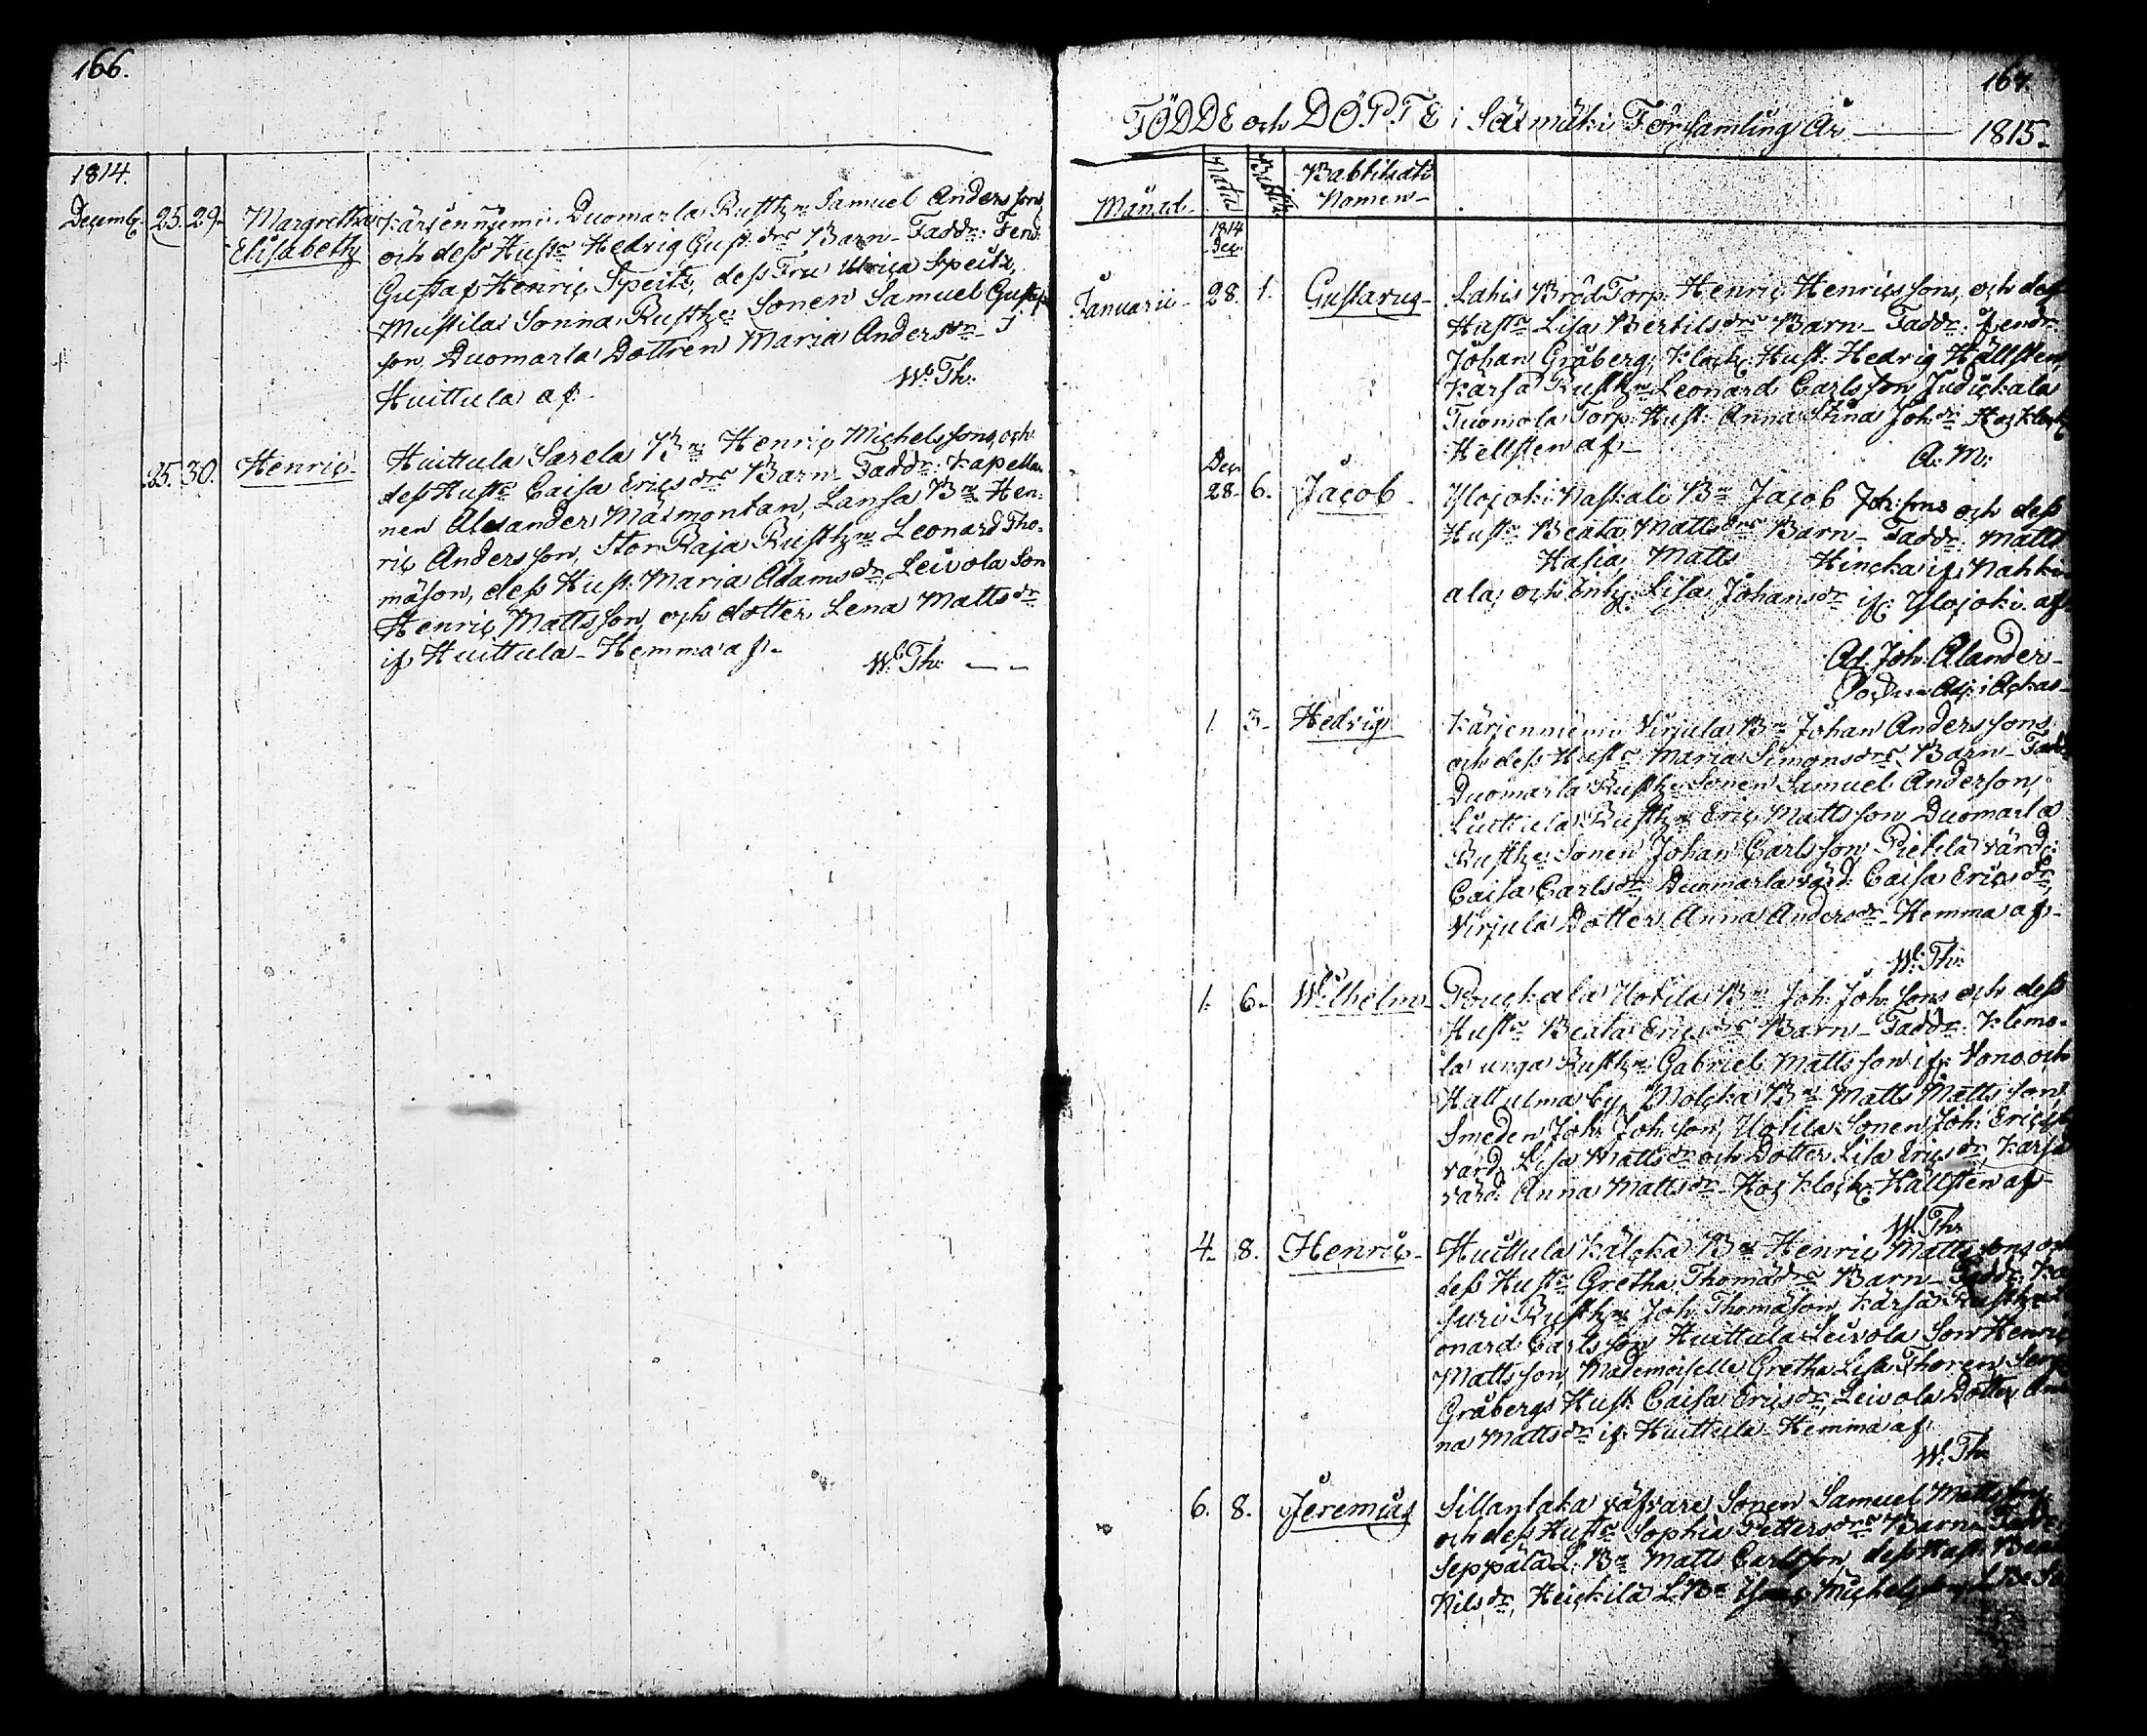 166.
1814.
Decemb. 25. 29. Margretha Kärjenniemi Duomarla Rusth:n Samuel Andersson,
Elisabeth och dess Hust:s Hedvig Gust:drs Barn_ Faddr: Fend:
Gustaf Henric Speitz, dess Fru Ulrica Speitz,
Mustila Sonna Rusth: Sonen Samuel Gustaf
son, Duomarla Dottren Maria Andersdr_ I
Huittula af_
W. Th:
25. 30. Henric_ Huittula Sarela B:n Henric Michelssons, och
dess Hust:s Caisa Ericsdrs Barn_ Faddr: Kapella
nen Alexander Malmontan, Lansa B:n Hen:
ric Andersson, Stor Raja Rusth:n Leonard Tho:
mäson, dess Hust: Maria Adamsdr, Leivola Son
Henric Mattsson, och dotter Lena Mattsdr
if: Huittula_ Hemma af_
W. Th: _ _
167.
FÖDDE och DÖPTE i Säxmäki Församling År 1815_
Månad_ Natu Babtiz Babtisati
Nomen_
1814
Dec:
Januarii_ 28. 1. Gustavus_ Lahis Bröd Torp: Henric Henricssons, och dess
Hust:s Lisa Bertilsdrs Barn_ Faddr: Fendr:
Johan Gråberg, Klock: Hust: Hedvig Hällsten,
Kärsä Rusth:n Leonard Carlsson, Judickala
Tuomola Torp: Hust: Anna Stina Joh:dr Hos Klock:
Hellsten af_
A: M:
Dec:
28. 6. Jacob_ Ylojoki Naskali B:n Jacob Joh:sons och dess
Hust:s Beata Mattsdrs Barn_ Faddr: Matts
Hasia, Matts Hincka if: Nahki
ala, och Enk: Lisa Johansdr if: Ylojoki af
Ad: Joh: Alander_
Adj: i Ackas_
1. 3_ Hedvig Kärjenniemi Virjula B:n Johan Anderssons
och dess Hust:s Maria Simonsdrs Barn_ Fadd:
Duomarla Rusth: Sonen Samuel Anderson,
Luttula Rusth:n Eric Mattsson, Duomarla
Rusth: Sonen Johan Carlsson, Pietilä värd:
Caisa Carlsdr, Duomarla värd: Caisa Ericsdr,
Virjula Dotter Anna Andersdr_ Hemma af_
W: Th:
1. 6_ Wilhelm_ Rouckala Uotila B:n Joh: Joh:sons och dess
Hust:s Beata Ericsdrs Barn_ Faddr: Klemo:
la unga Rusth:n Gabriel Mattsson if: Vono och
Hattulma by, Molcka B:n Matts Mattsson,
Smeden Joh: Joh:son, Uotila Sonen Joh: Ericsso
värd: Lisa Mattsdr och Dotter Lisa Ericsdr, Kärsä
värd: Anna Mattsdr_ Hos Klock: Hällsten af_
W. Th:
4_ 8. Henric_ Huittula Kälcka B:n Henric Mattssons och
dess Hust:s Gretha Thomädrs Barn_ Faddr:
Rusth:n Joh: Thomäson, Kärsä Rusth:n
onard Carlsson, Huittula Leivola Son Henric
Mattsson, Mademoiselle Gretha Lisa Thoren, Serg:
Gråbergs Hust: Caisa Ericsdr, Leivola Dotter An
na Mattsdr if: Huittula_ Hemma af_
W. Th:
6. 8. Jeremias Sillantaka väfvare Sonen Samuel Mattssons
och dess Hust:s Sophia Pettersdrs Barn_ Fadd:
Seppälä L: B:n Matts Carlsson, dess Hust: Beat
Nilsdr, Heickilä L: B:n Michelsson,